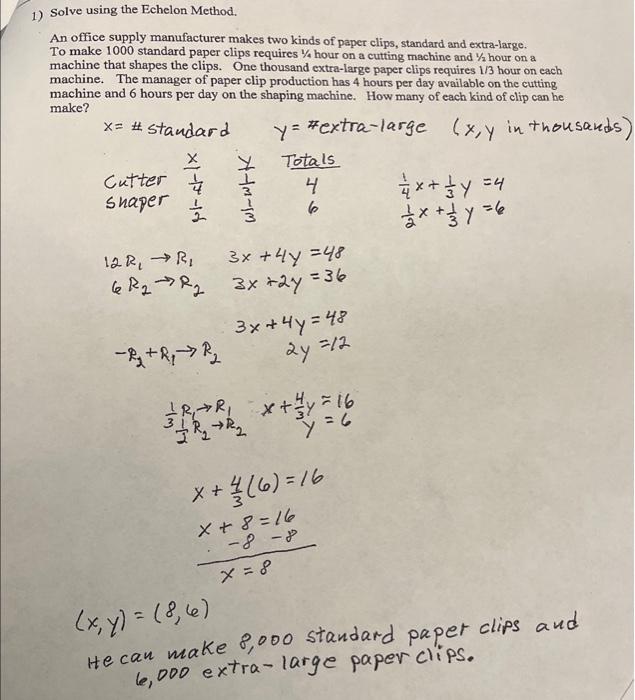 1.) Solve using the Echelon Method.
An office supply manufacturer makes two kinds of paper clips, standard and extra-large.
To make 1000 standard paper clips requires ¼ hour on a cutting machine and ½ hour on a
machine that shapes the clips. One thousand extra-large paper clips requires 1/3 hour on each
machine. The manager of paper clip production has 4 hours per day available on the cutting
machine and 6 hours per day on the shaping machine. How many of each kind of clip can he
make?
x = # standard y = # extra-large (x, y in thousands)
x y Totals
Cutter 1/4 1/3 4 1/4 x + 1/3 y = 4
Shaper 1/2 1/3 6 1/2 x + 1/3 y = 6
12 R₁ → R₁ 3x + 4y = 48
6 R₂ → R₂ 3x + 2y = 36
3x + 4y = 48
-R₂ + R₁ → R₂ 2y = 12
1/3 R₁ → R₁ x + 4/3 y = 16
1/2 R₂ → R₂ y = 6
x + 4/3 (6) = 16
x + 8 = 16
-8 -8
x = 8
(x, y) = (8, 6)
He can make 8,000 standard paper clips and
6,000 extra-large paper clips.